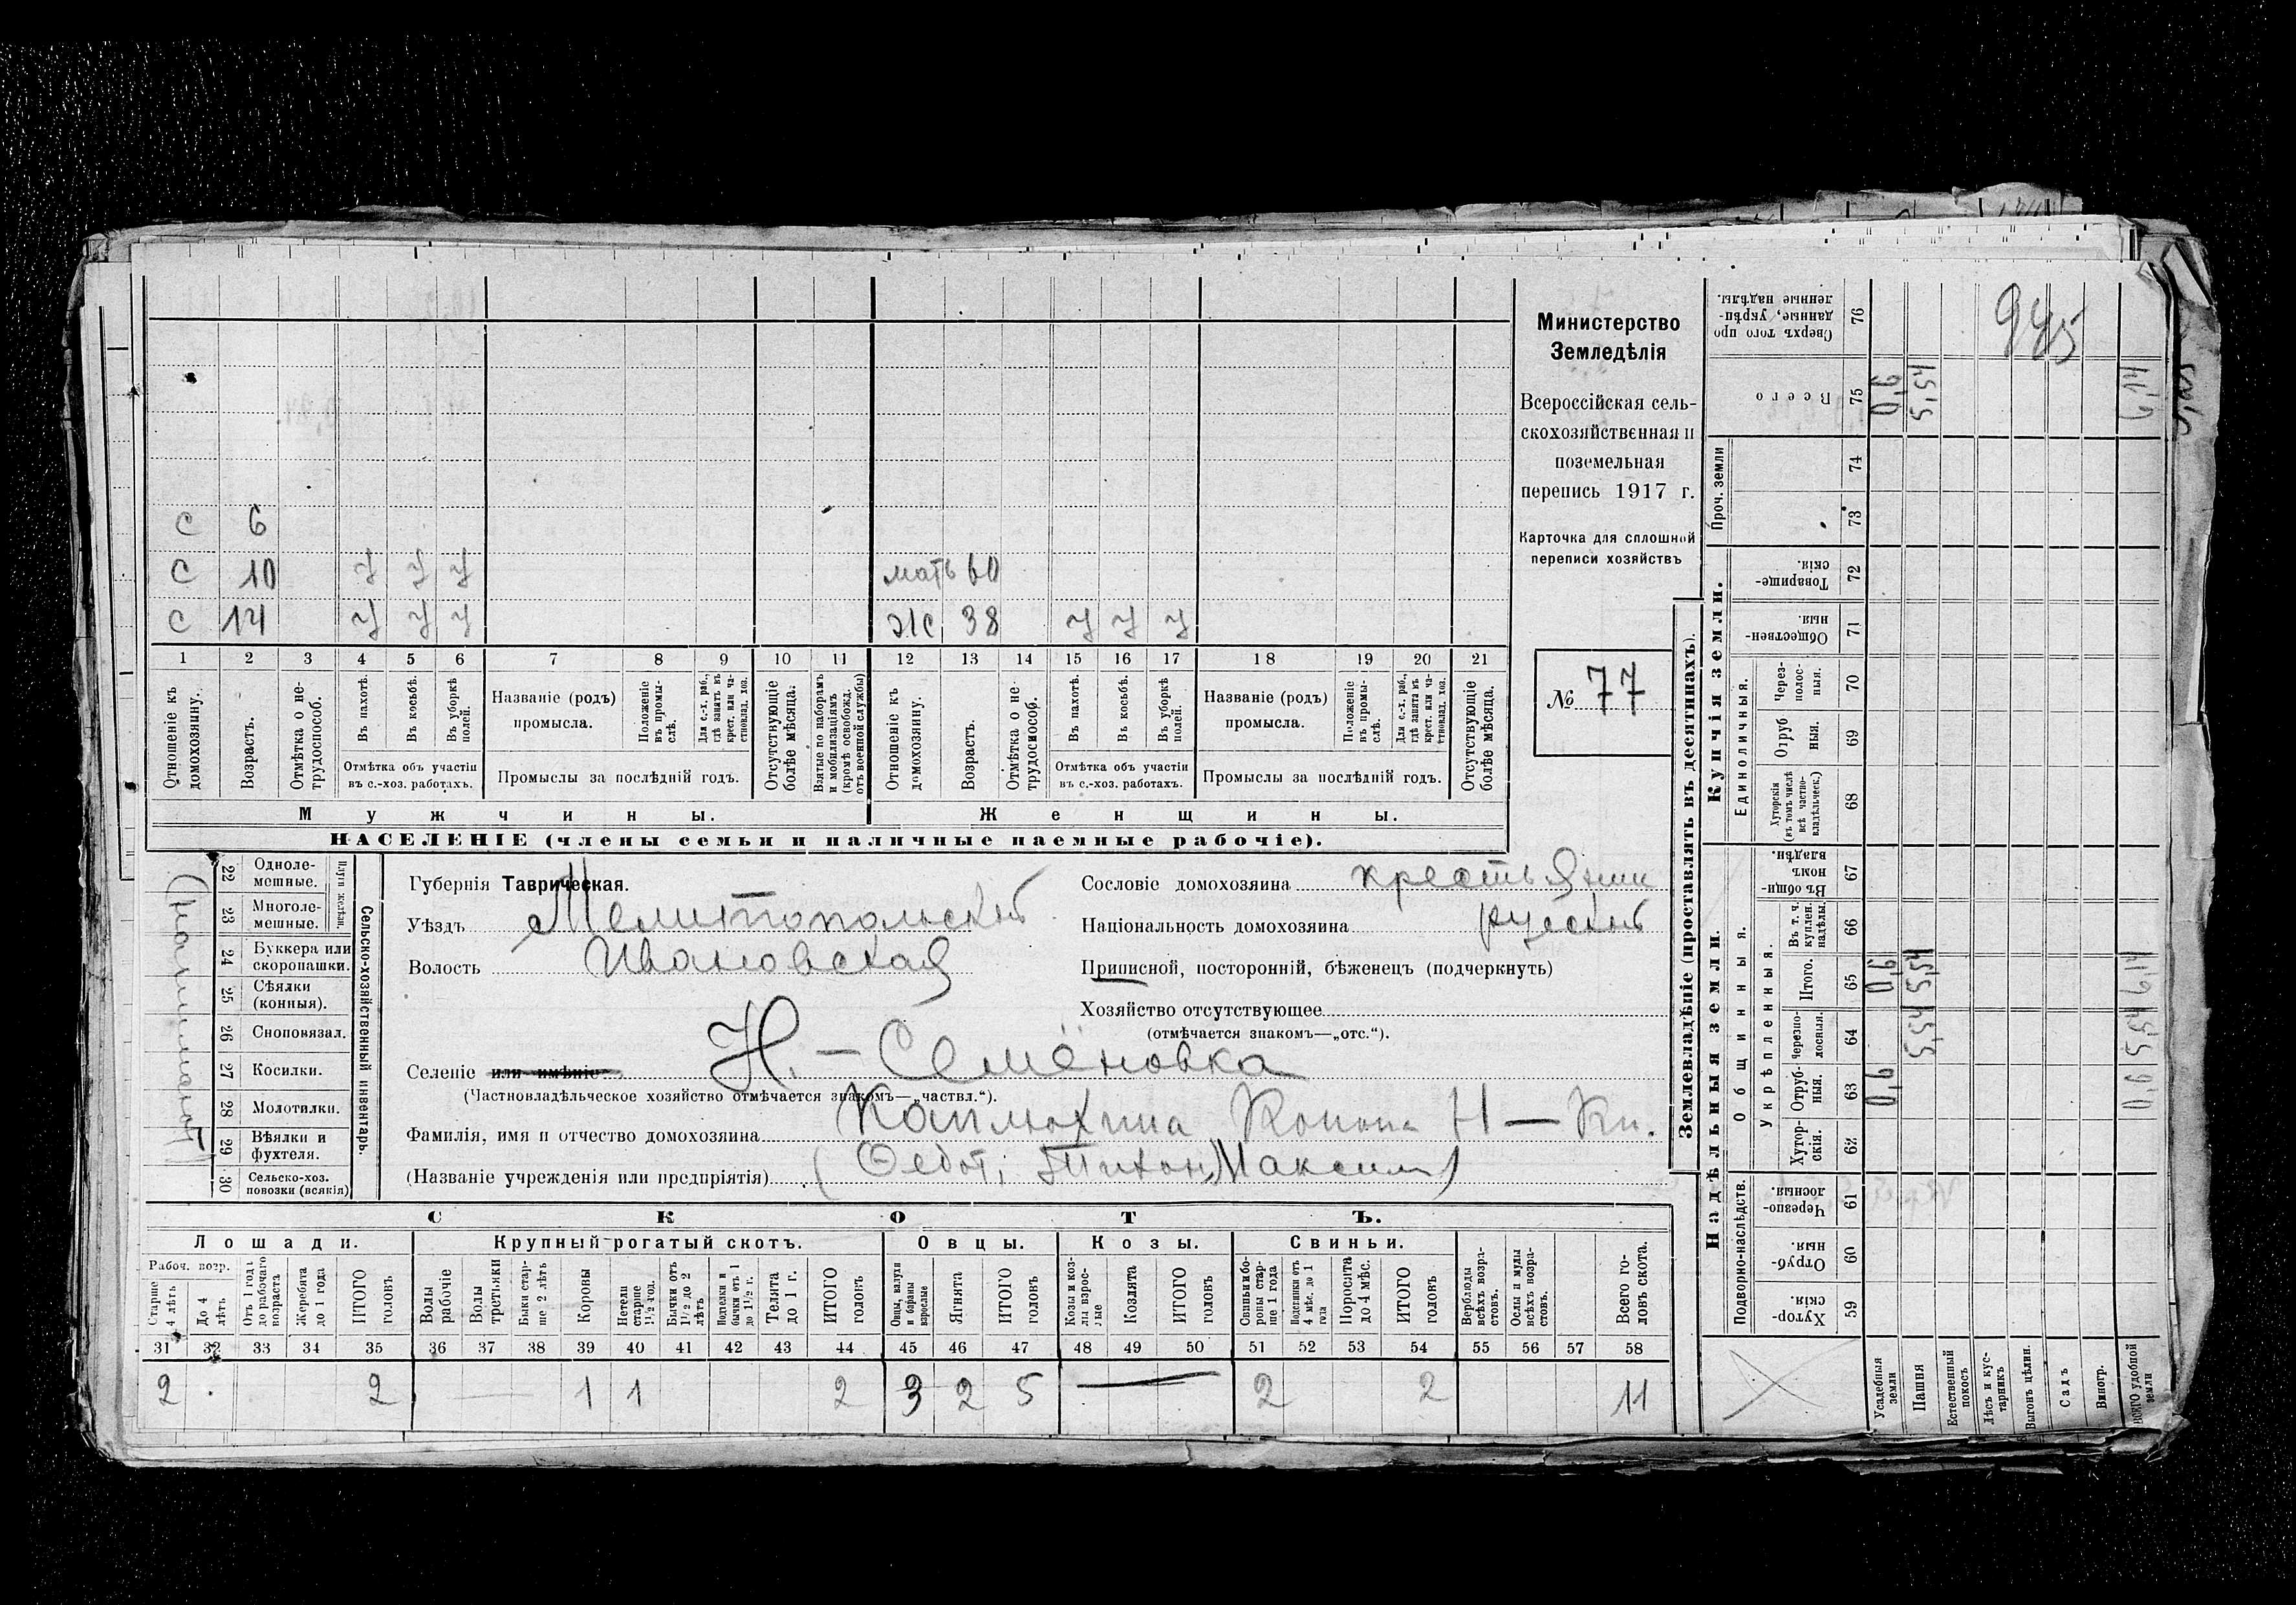 с 6
с 10 У У У мать 60
с 14 У У У ж 38 У У У
1 2 3 4 5 6 7 8 9 10 11 12 13 14 15 16 17 18 19 20 21
Отношеніе къ домохозяину.
Возрастъ.
Отмѣтка о не-
трудоспособ.
Въ пахотѣ.
Въ косьбѣ.
Въ уборкѣ
полей.
Отмѣтка объ участіи
въ с.-хоз. работахъ.
Названіе (родъ)
промысла.
Положеніе
въ промы-
слѣ.
Для с.-х. раб.,
гдѣ занятъ въ
крест. или ча-
стновлад. хоз.
Промыслы за послѣдній годъ.
Отсутствующіе
болѣе мѣсяца.
Взятые по наборамъ
и мобилизаціямъ
(кромѣ освобожд.
отъ военной службы)
Отношеніе къ
домохозяину.
Возрастъ.
Отмѣтка о не
трудоспособ.
Въ пахотѣ.
Въ косьбѣ.
Въ уборкѣ
полей.
Отмѣтка объ участіи
въ с.-хоз. работахъ.
Названіе (родъ)
промысла.
Положеніе
въ промы-
слѣ.
Для с.-х. раб.,
гдѣ занятъ въ
крест. или ча-
стновлад. хоз.
Промыслы за послѣдній годъ.
Отсутствующіе
болѣе мѣсяца.
Мужчины. Женщины.
НАСЕЛЕНІЕ (члены семьи и наличные наемные рабочіе).
Министерство
Земледѣлія
Всероссійская сель-
скохозяйственная и
поземельная
перепись 1917 г.
Карточка для сплошной
переписи хозяйствъ
№ 77
22 Одноле-
мешные.
23 Многоле-
мешные.
Плуги желѣзн.
24 Буккера или
скоропашки.
25 Сѣялки
(конныя).
26 Сноповязал.
27 Косилки.
28 Молотилки.
29 Вѣялки и
фухтеля.
30 Сельско-хоз.
повозки (всякія)
Сельско-хозяйственный инвентарь.
Губернія Таврическая.
Уѣздъ Мелитопольскій
Волость Ивановская
Сословіе домохозяина крестьянин
Національность домохозяина русскій
Приписной, посторонній, бѣженецъ (подчеркнуть)
Хозяйство отсутствующее
(отмѣчается знакомъ—„отс.“).
Селеніе или имѣніе Н.-Семёновка
(Частновладѣльческое хозяйство отмѣчается знакомъ—„частвл.“).
Фамилія, имя и отчество домохозяина Каплюхина Конона Н—ки.
(Названіе учрежденія или предпріятія) (Федот, Тихон, Максим)
СКОТЪ.
Лошади. Крупный рогатый скотъ. Овцы. Козы. Свиньи.
Рабоч. возр.
Старше
4 лѣтъ
До 4
лѣтъ
Отъ 1 года
до рабочаго
возраста
Жеребята
до 1 года
ИТОГО
головъ
Волы
рабочіе
Волы
третьяки
Быки стар-
ше 2 лѣтъ
Коровы
Нетели
старше
1½ год.
Бычки отъ
1½ до 2
лѣтъ
Подтелки и
бычки отъ 1
до 1½ г.
Телята
до 1 г.
ИТОГО
головъ
Овцы, валухи
и бараны
взрослые
Ягнята
ИТОГО
головъ
Козы и коз-
лы взрос-
лые
Козлята
ИТОГО
головъ
Свиньи и бо-
ровы стар-
ше 1 года
Подсвинки отъ
4 мѣс. до 1
года
Поросята
до 4 мѣс.
ИТОГО
головъ
Верблюды
всѣхъ возра-
стовъ.
Ослы и мулы
всѣхъ возра-
стовъ.
Всего го-
ловъ скота.
31 32 33 34 35 36 37 38 39 40 41 42 43 44 45 46 47 48 49 50 51 52 53 54 55 56 57 58
2 2 1 1 2 3 2 5 2 2 11
Землевладѣніе (проставлять въ десятинахъ).
Купчія земли.
Надѣльныя земли.
Сверхъ того про
данные, укрѣп-
ленные надѣлы. 76
945
Всего 75 0,9 5,54 6,14
Проч. земли 74
73
Товарище-
скія. 72
Обществен-
ныя 71
Единоличныя.
Через-
полос-
ныя. 70
Отруб
ныя. 69
Хуторскія
(въ томъ числѣ
всѣ частно-
владѣльческ.) 68
Общинныя.
Въ общи-
номъ
владѣн. 67
Укрѣпленныя.
Въ т. ч.
куплен.
надѣлы. 66
Итого. 65 0,9 5,54 6,14
Черезпо-
лосныя. 64 5,54 5,54
Отруб-
ныя. 63 0,6 0,6
Хутор-
скія. 62
Подворно-наслѣдств.
Черезпо-
лосныя. 61
Отруб-
ныя 60
Хутор-
скія. 59
Усадебныя
земли
Пашня
Естественный
покосъ
Лѣсъ и кус-
тарникъ
Выгонъ цѣлин.
Садъ
Виногр.
ВСЕГО удобной
земли